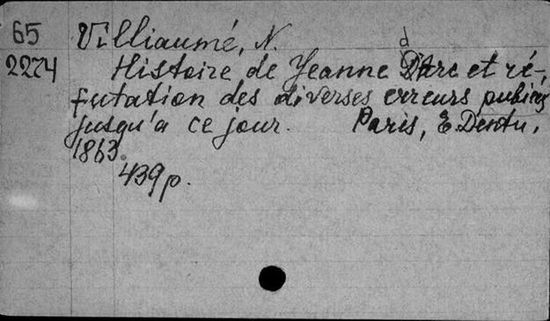 65
2274
Villiaumé, N.
Histoire de Jeanne D'Arc et ré-
futation des diverses erreurs publiées
jusqu'à ce jour. Paris, E. Dentu,
1863.
439 p.